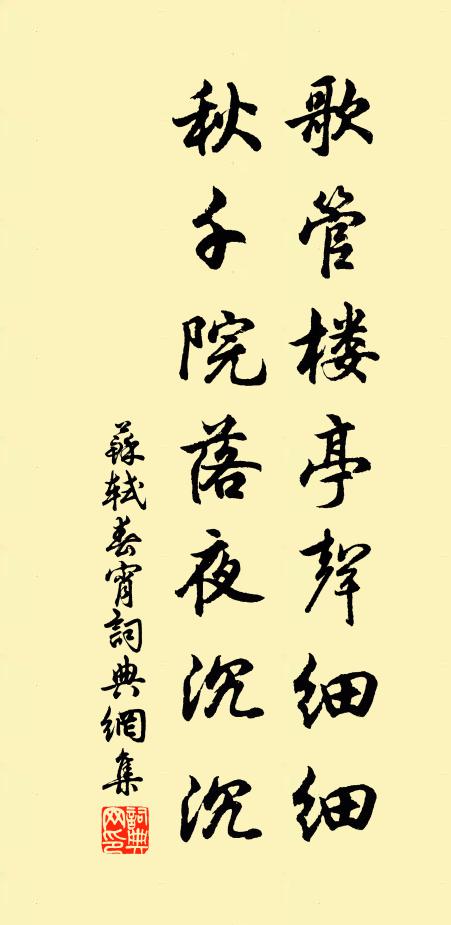 歌管楼亭聲细细
秋千院落夜沉沉
蘇軾春宵詞典網集
詞典网印